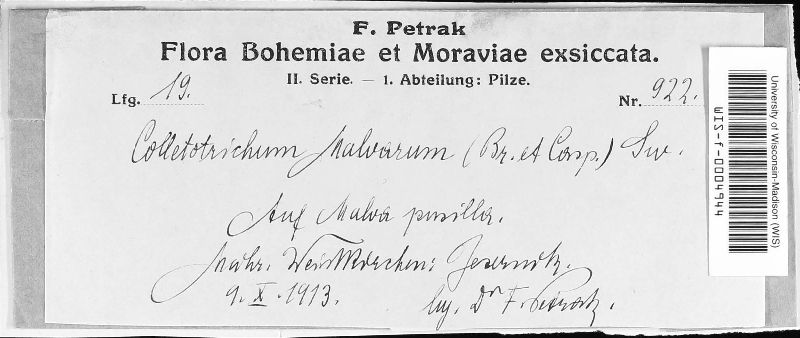 F. Petrak
Flora Bohemiae et Moraviae exsiccata.
II. Serie. — 1. Abteilung: Pilze.
Lfg. 19.
Nr. 922.
Colletotrichum Malvarum (Br. et Casp.) Sw.
Auf Malva pusilla.
Mähr. Weißkirchen: Jesernitz.
9. X. 1913.
leg. Dr F. Petrak.
University of Wisconsin-Madison (WIS)
WIS-f-0004944